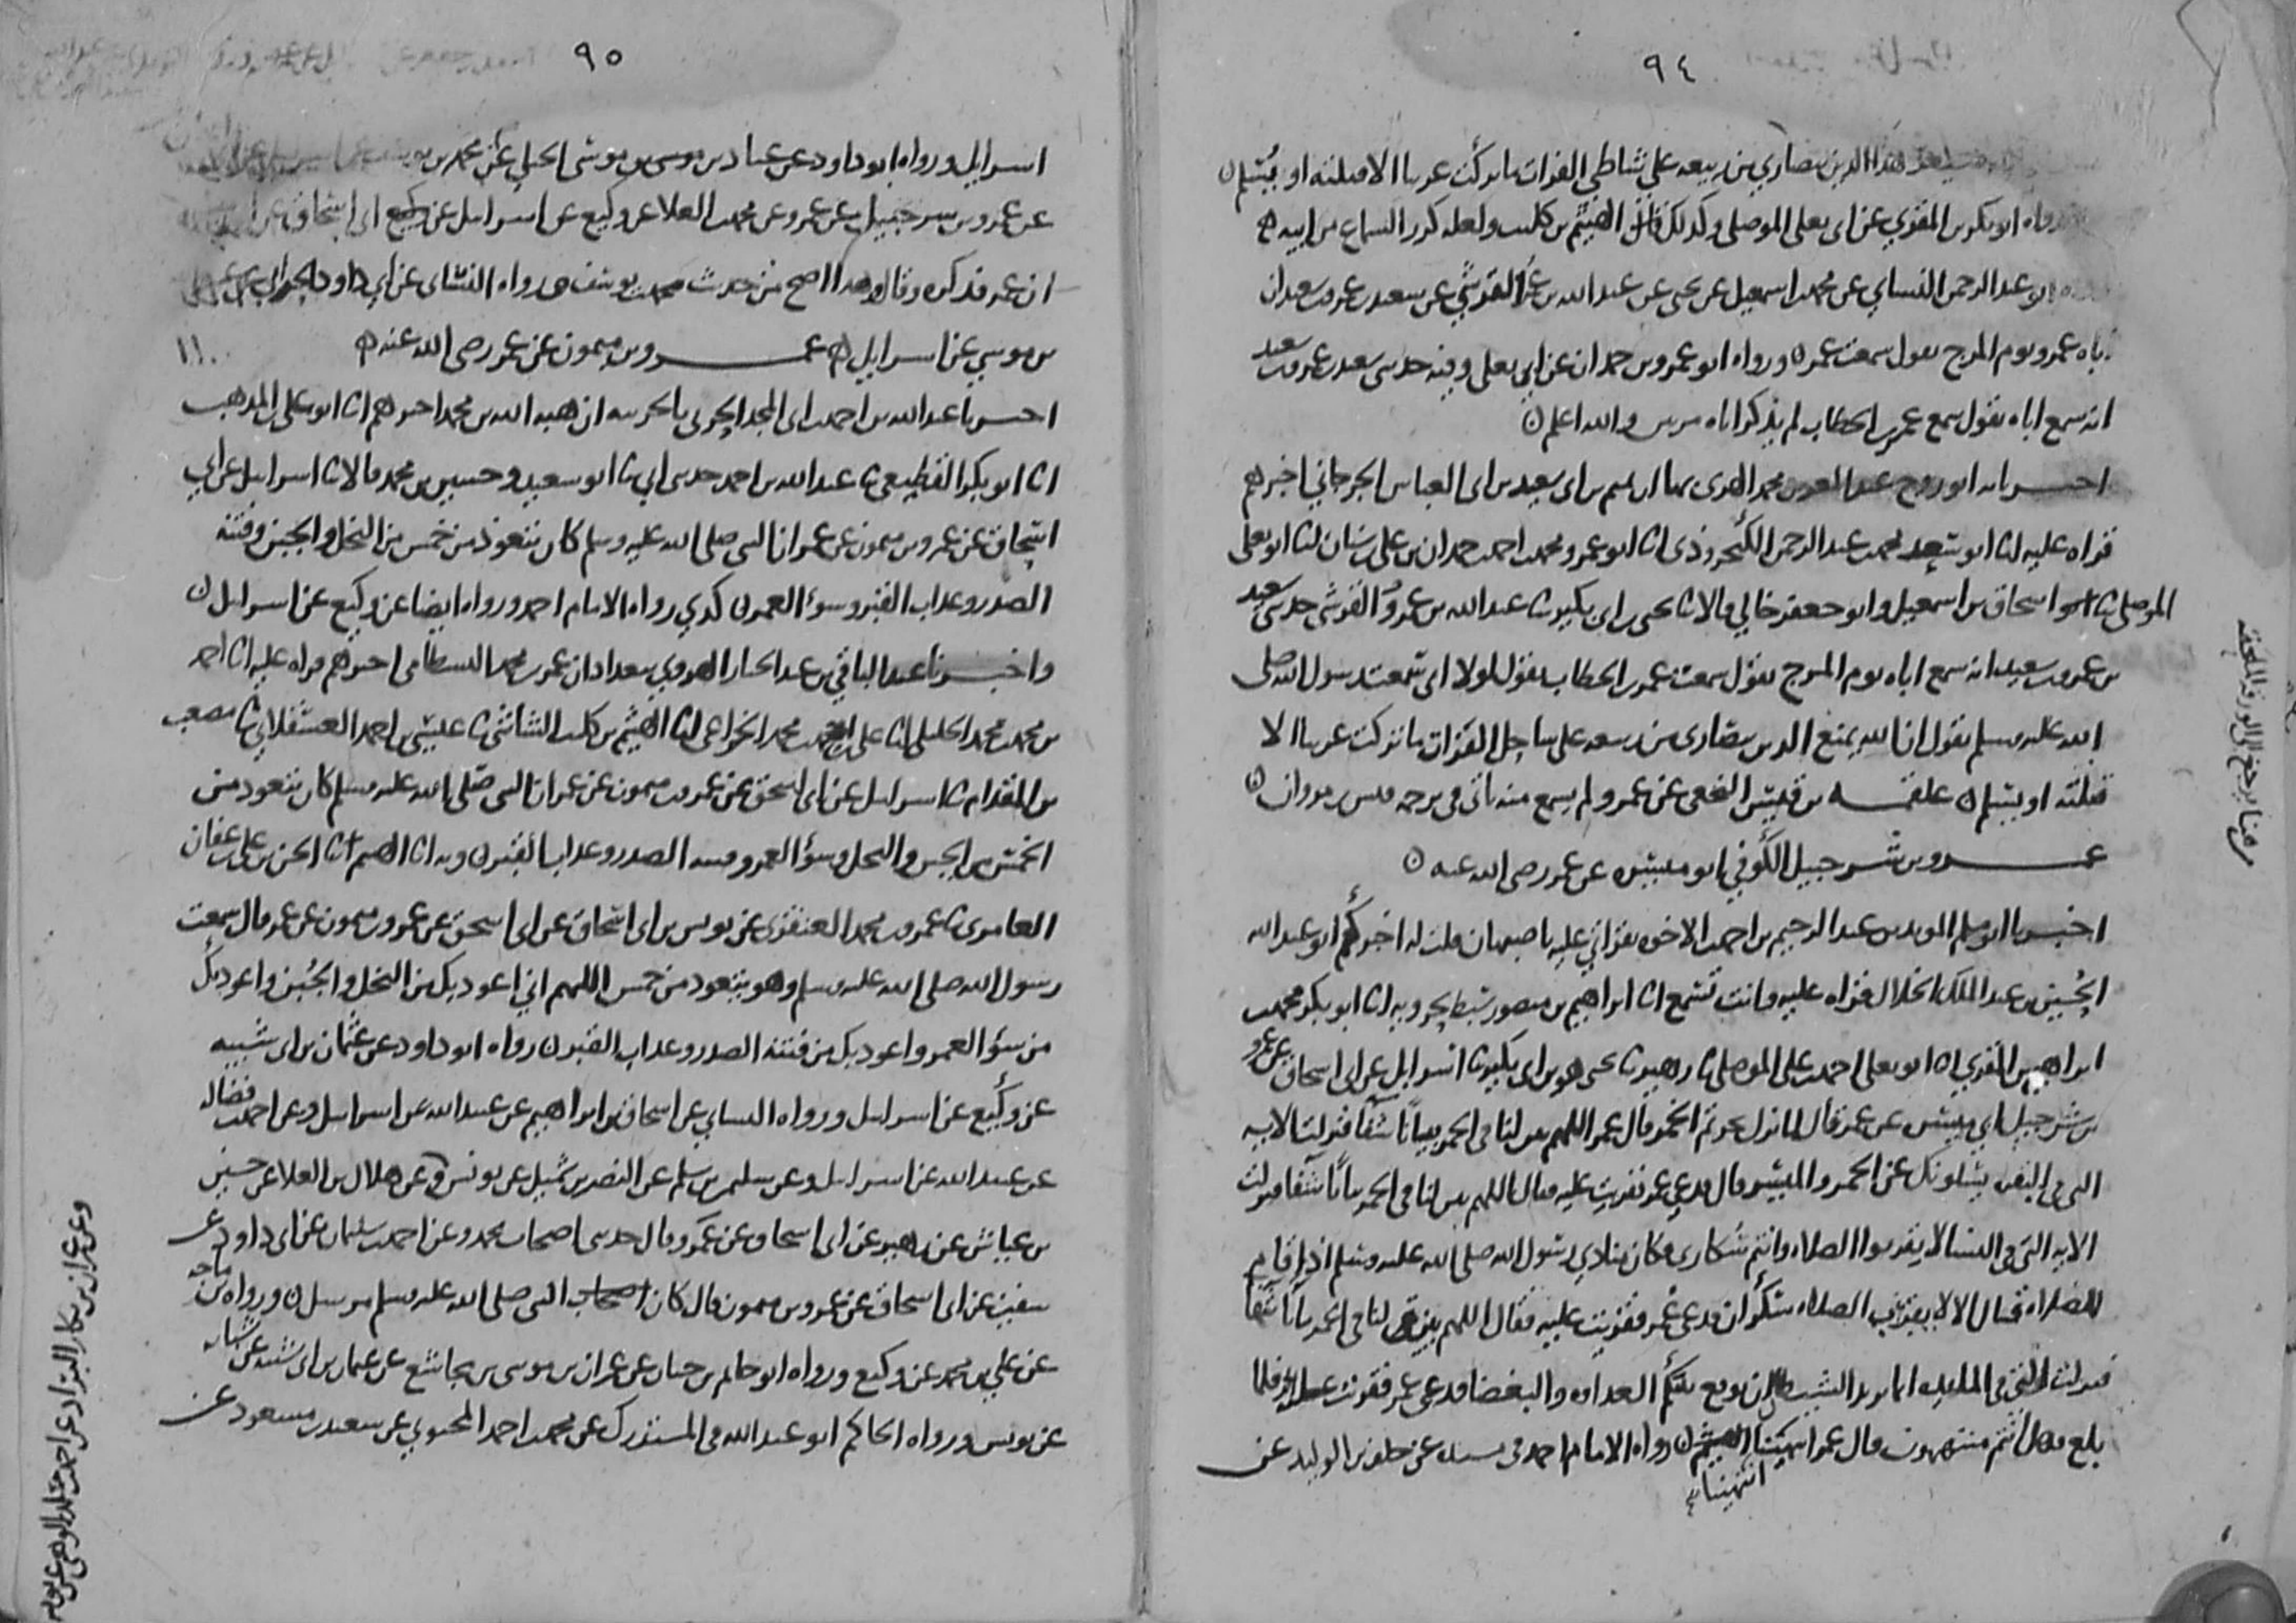 ٩٤
هذا الدين بنصارى من ربيعه على شاطي الفرات ما تركت عربيا الا قتلته او يُسلم
رواه ابو بكر بن المقري عن ابى يعلى الموصلى وكذلك قال الهيثم بن كليب ولعله كرر السماع من ابيه
ابو عبد الرحمن النساي عن محمد بن اسمعيل عن يحيى عن عبد الله بن عمر القرشي عن سعيد بن عمرو بن سعيد ان
اباه عمرو يوم المرج يقول سمعت عمر ورواه ابو عمرو بن حمدان عن ابي يعلى وفيه حدثنى سعيد بن عمرو بن سعيد
انه سمع اباه يقول سمع عمر بن الخطاب لم يذكر اباه مرتين والله اعلم
اخبرنا ابو روح عبد المعز بن محمد الهروى بها ان تميم بن ابى سعيد بن ابى العباس الجرجاني اخبرهم
قراه عليه انا ابو سعيد محمد بن عبد الرحمن الكنجروذى انا ابو عمرو محمد بن احمد بن حمدان بن على بن سنان انا ابو يعلى
الموصلى ثنا اسحاق بن اسمعيل وابو جعفر خالي قالا ثنا يحيى بن ابى بكير ثنا عبد الله بن عمرو القرشى حدثنى سعيد
بن عمرو بن سعيد انه سمع اباه يوم المرج يقول سمعت عمر بن الخطاب يقول لولا انى سمعت رسول الله صلى
الله عليه وسلم يقول ان الله يمنع الدين بنصارى من ربيعه على ساحل الفرات ما تركت عربيا الا
قتلته او يسلم علقمه بن قيس النخعى عن عمر ولم يسمع منه ياتى فى ترجمه قيس بن مروان
عمرو بن شرحبيل الكوفي ابو ميسره عن عمر رضى الله عنه
اخبرنا ابو مسلم المويد بن عبد الرحيم بن احمد بن الاخوه بقراتي عليه باصبهان قلت له اخبركم ابو عبد الله
الحُسين بن عبد الملك الخلال قراه عليه وانت تسمع انا ابراهيم بن منصور سبط بحرويه انا ابو بكر محمد بن
ابراهيم بن المقري انا ابو يعلى احمد بن على الموصلى ثنا زهير ثنا يحيى هو بن ابى بكير ثنا اسرايل عن ابى اسحاق عن عمرو
بن شرحبيل ابي ميسره عن عمر قال لما نزل تحريم الخمر قال عمر اللهم بين لنا فى الخمر بيانا شفا فنزلت الايه
التى فى البقره يسلونك عن الخمر والميسر قال فدعي عمر فقريت عليه فقال اللهم بين لنا فى الخمر بيانا شفا فنزلت
الايه التى فى النسا لا تقربوا الصلاه وانتم سُكارى فكان منادي رسول الله صلى الله عليه وسلم اذا قام
للصلاه قال الا لا يقربن الصلاه سكران فدعى عُمر فقريت عليه فقال اللهم بين لنا فى الخمر بيانا شفا
فنزلت التى فى المايده انما يريد الشيطان ان يوقع بينكم العداوه والبغضا فدعى عمر فقريت عليه فلما
بلغ فهل انتم منتهون قال عمر انتهينا رواه الامام احمد فى مسنده عن خلف بن الوليد عن
انتهينا
٩٥
اسرايل ورواه ابو داود عن عباد بن موسى الختلي عن محمد بن
عن عمرو بن شرحبيل عن عمر وعن محمد بن العلا عن وكيع عن اسرايل عن ابى اسحاق عن
ان عمر فذكره وقال هذا اصح من حديث محمد بن يوسف ورواه النساى عن ابي داود
بن موسى عن اسرايل عمرو بن ميمون عن عمر رضى الله عنه
اخبرنا عبد الله بن احمد بن ابى المجد الحربى بالحربيه ان هبه الله بن محمد اخبرهم انا ابو على بن المذهب
انا ابو بكر القطيعى ثنا عبد الله بن احمد حدثنى ابي ثنا ابو سعيد وحسين بن محمد قالا ثنا اسرايل عن ابي
اسحاق عن عمرو بن ميمون عن عمر ان النبى صلى الله عليه وسلم كان يتعوذ من خمس من البخل والجبن وفتنه
الصدر وعذاب القبر وسوء العمر كذي رواه الامام احمد ورواه ايضا عن وكيع عن اسرايل
واخبرنا عبد الباقي بن عبد الجبار الهروي ببغداد ان عمر بن محمد البسطامى اخبرهم قراه عليه انا احمد
بن محمد بن محمد الخليلى انا على بن احمد بن محمد الخزاعى انا الهيثم بن كليب الشاشى ثنا عيسى بن احمد العسقلاني ثنا مصعب
بن المقدام ثنا اسرايل عن ابى اسحق عن عمرو بن ميمون عن عمر ان النبى صلى الله عليه وسلم كان يتعوذ من
الخمس من الجبن والبخل وسوء العمر وفتنه الصدر وعذاب القبر وبه انا الهيثم انا الحسن بن على بن عفان
العامرى ثنا عمرو بن محمد العنقزى عن يونس بن ابى اسحاق عن ابى اسحق عن عمرو بن ميمون عن عمر قال سمعت
رسول الله صلى الله عليه وسلم وهو يتعوذ من خمس اللهم اني اعوذ بك من البخل والجُبن واعوذ بك
من سوء العمر واعوذ بك من فتنة الصدر وعذاب القبر رواه ابو داود عن عثمان بن ابى شيبه
عن وكيع عن اسرايل ورواه النساي عن اسحاق بن ابراهيم عن عبيد الله عن اسرايل وعن احمد بن فضاله
عن عبيد الله عن اسرايل وعن سليمن بن سلم عن النضر بن شميل عن يونس وعن هلال بن العلا عن حسين
بن عياش عن زهير عن ابى اسحاق عن عمرو قال حدثنى اصحاب محمد وعن احمد بن سليمان عن ابى داود عن
سفين عن ابى اسحاق عن عمرو بن ميمون قال كان النبى صلى الله عليه وسلم مرسل ورواه بن ماجه
عن علي بن محمد عن وكيع ورواه ابو حاتم بن حبان عن عمران بن موسى بن مجاشع عن عثمان بن ابى شيبه عن شبابه
عن يونس ورواه الحاكم ابو عبد الله فى المستدرك عن محمد بن احمد المحبوبي عن سعيد بن مسعود عن